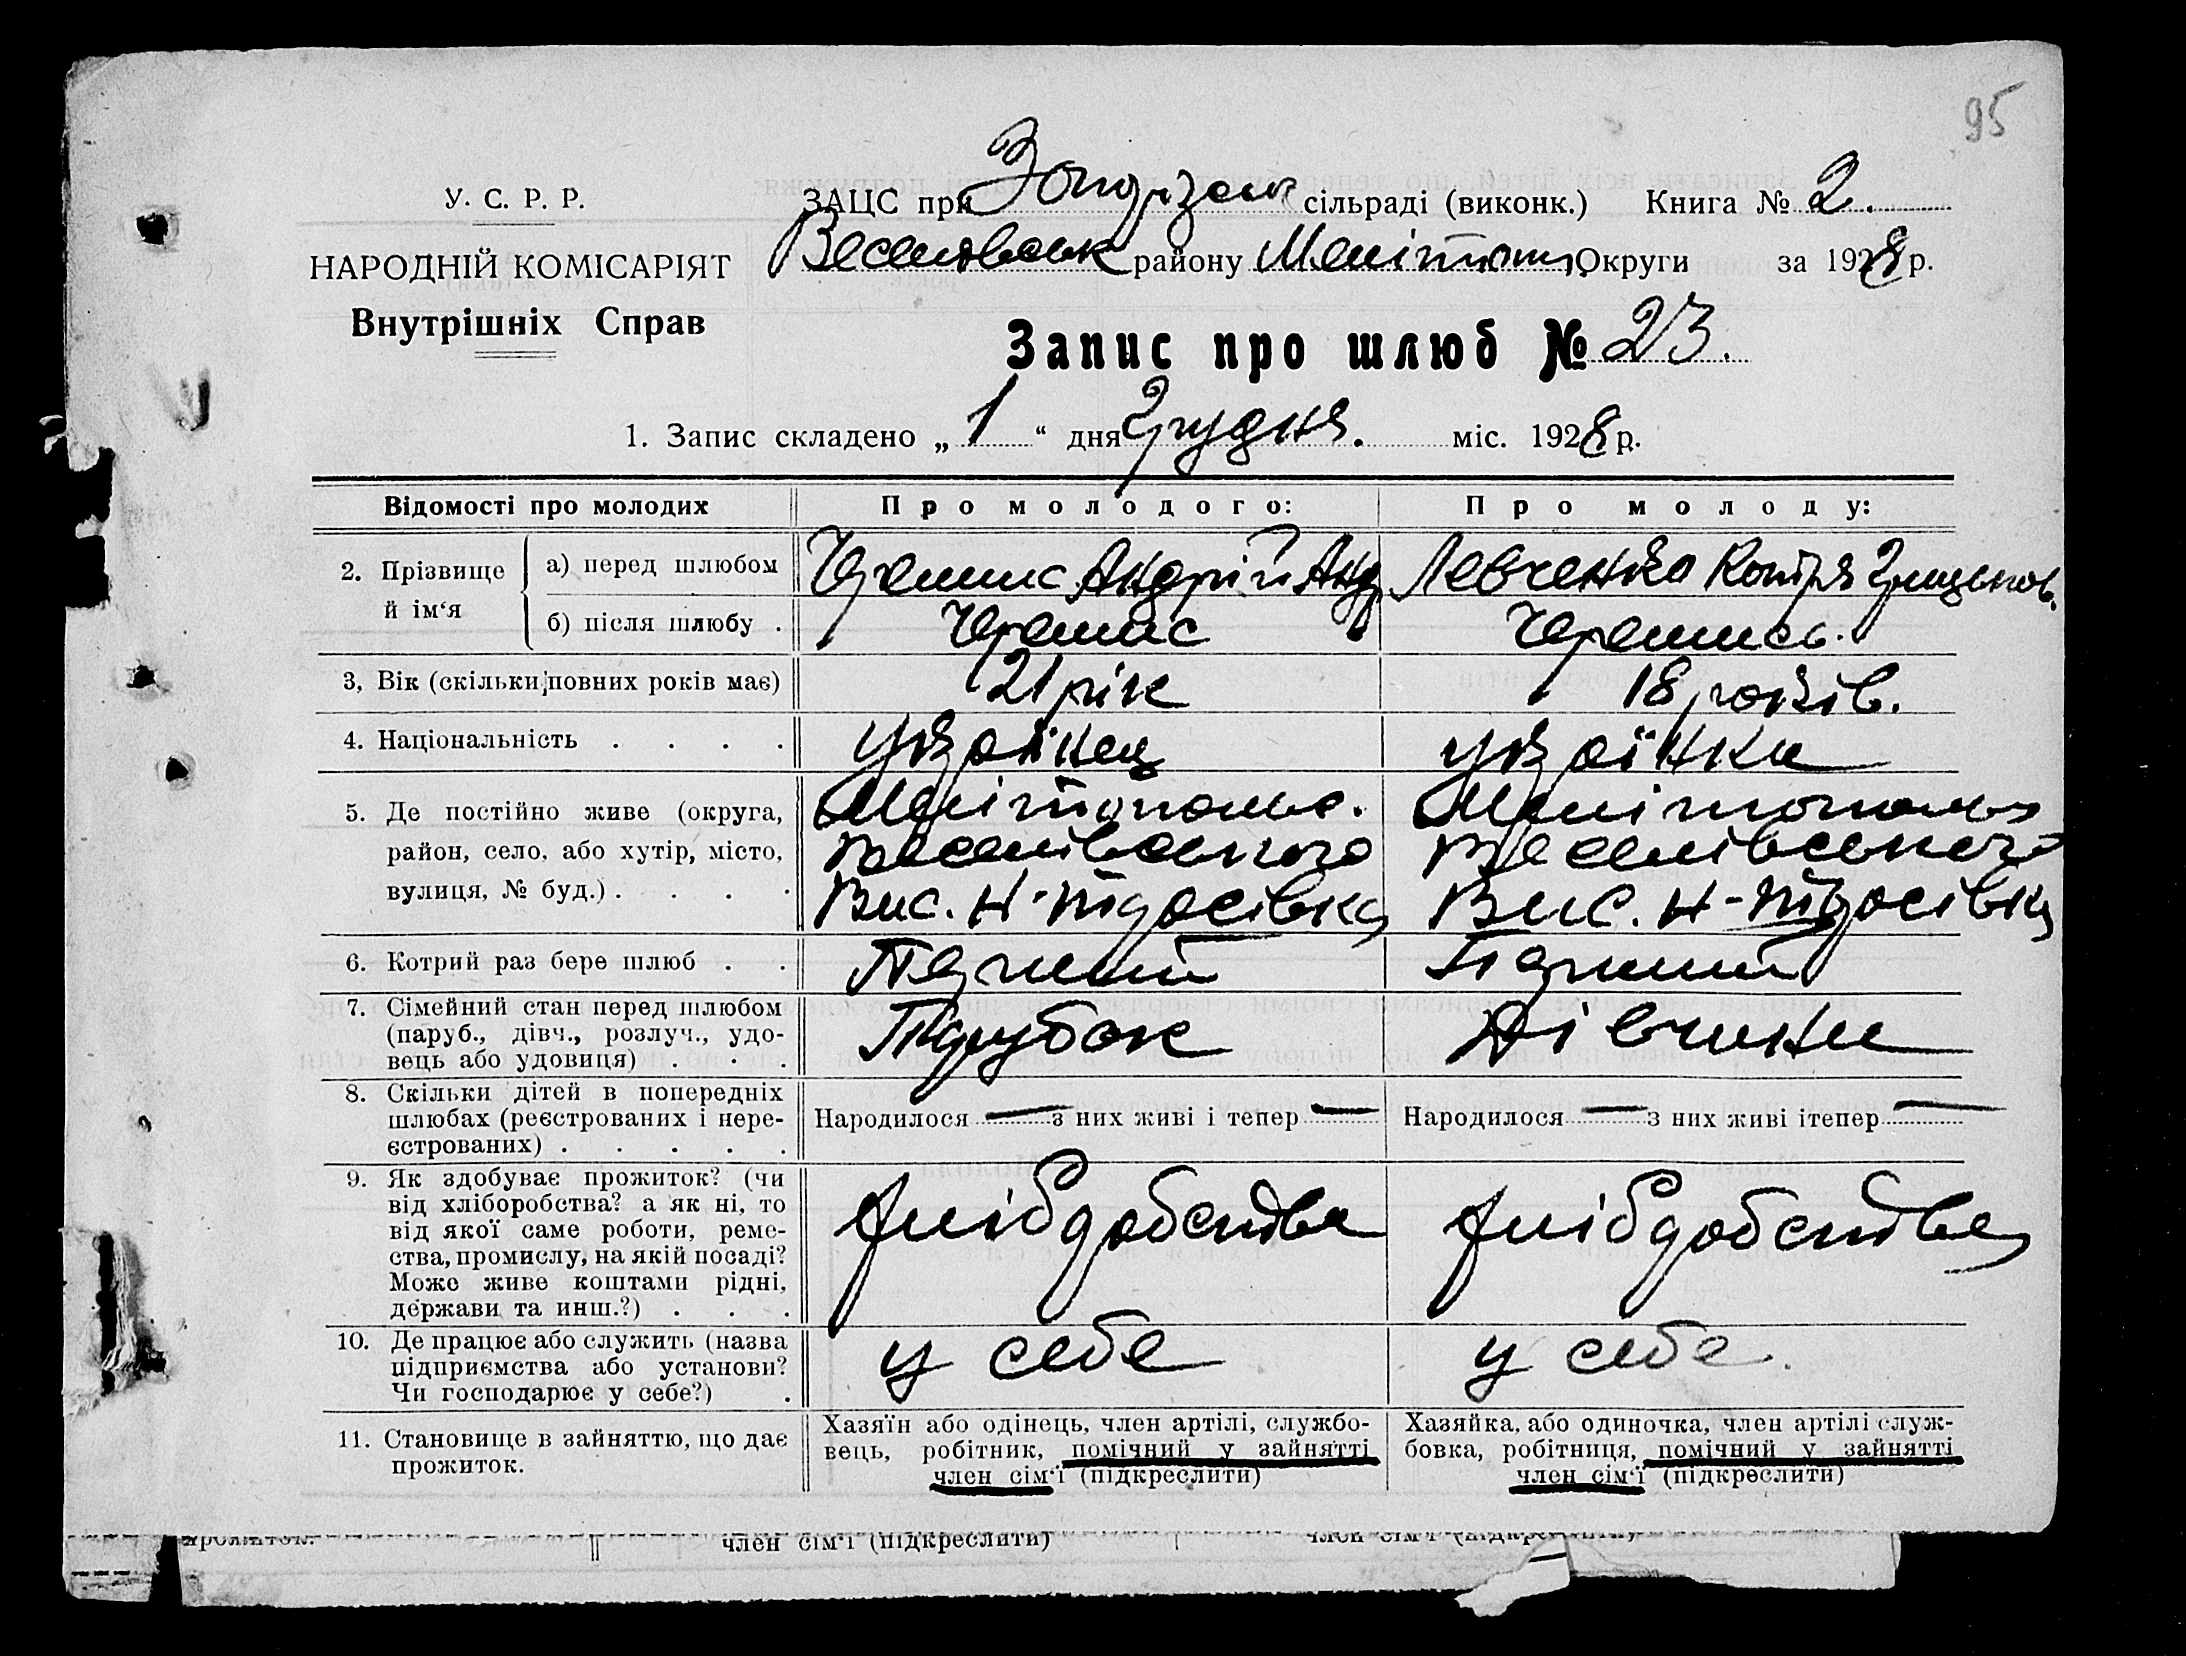 95
У. С. Р. Р.
НАРОДНІЙ КОМІСАРІЯТ
Внутрішніх Справ
ЗАЦС при сільраді (виконк.) Книга № 2.
Веселовськ району Мелітоп. Округи за 1928 р.
Запис про шлюб № 23.
1. Запис складено „ 1 “ дня Грудня. міс. 1928 р.
Відомості про молодих Про молодого: Про молоду:
2. Прізвище й ім‘я
а) перед шлюбом Черемис Андрій Анд Левченко Грицьков.
б) після шлюбу . Черемис Черемись.
3, Вік (скільки повних років має) 21 рік 18 років.
4. Національність . . . . українец українка
5. Де постійно живе (округа, Мелітопольс. Мелітопольс
район, село, або хутір, місто, Веселівського Веселівського
вулиця, № буд.) . . . . Вис. Н- Вис. Н-
6. Котрий раз бере шлюб . . Перший Перший
7. Сімейний стан перед шлюбом Парубок Дівчина
(паруб., дівч., розлуч., удо-
вець або удовиця) . . .
8. Скільки дітей в попередніх
шлюбах (реєстрованих і нере- Народилося — з них живі і тепер — Народилося — з них живі ітепер —
єстрованих) . . . . .
9. Як здобуває прожиток? (чи
від хліборобства? а як ні, то хліборобства хліборобства
від якої саме роботи, реме-
ства, промислу, на якій посаді?
Може живе коштами рідні,
держави та инш.?) . . .
10. Де працює або служить (назва у себе у себе.
підприємства або установи?
Чи господарює у себе?) .
11. Становище в зайняттю, що дає
прожиток.
Хазяїн або одінець, член артілі, службо-
вець, робітник, помічний у зайнятті
член сім‘ї (підкреслити)
Хазяйка, або одиночка, член артілі служ-
бовка, робітниця, помічний у зайнятті
член сім‘ї (підкреслити)
прожиток. член сім‘ї (підкреслити) член сім‘ї (підкреслити)